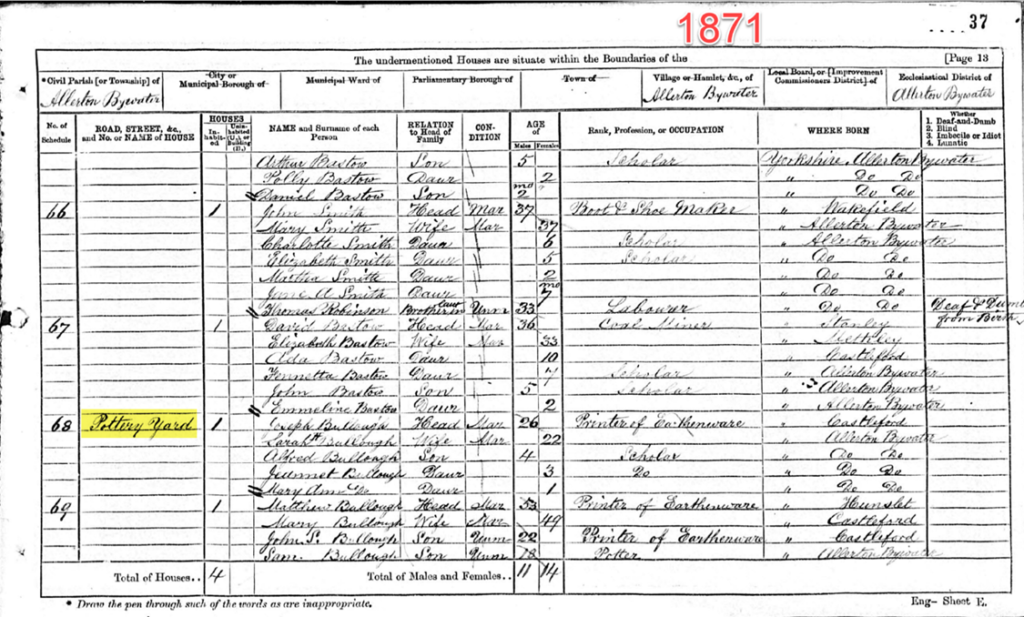 1871
37
The undermentioned Houses are situate within the Boundaries of the [Page 13
*Civil Parish [or Township] of City or Municipal Borough of Municipal Ward of Parliamentary Borough of Town of Village or Hamlet, &c., of Local Board, or [Improvement Commissioners District] of Ecclesiastical District of
Allerton Bywater Allerton Bywater Allerton Bywater
No. of Schedule ROAD, STREET, &c., and No. or NAME of HOUSE HOUSES Inhabited Uninhabited (U.), or Building (B.) NAME and Surname of each Person RELATION to Head of Family CONDITION AGE of Males Females Rank, Profession, or OCCUPATION WHERE BORN Whether 1. Deaf-and-Dumb 2. Blind 3. Imbecile or Idiot 4. Lunatic
Arthur Bastow Son 5 Scholar Yorkshire, Allerton Bywater
Polly Bastow Daur 2 " Do Do
Daniel Bastow Son mo 2 " Do Do
66 1 John Smith Head Mar 37 Boot & Shoe Maker " Wakefield
Mary Smith Wife Mar 37 " Allerton Bywater
Charlotte Smith Daur 6 Scholar " Allerton Bywater
Elizabeth Smith Daur 5 Scholar " Do Do
Martha Smith Daur 2 " Do Do
Jane A Smith Daur mo 7 " Do Do
Thomas Robinson Brother in law Unm 33 Labourar " Do Do Deaf & Dumb from Birth
67 1 David Bastow Head Mar 36 Coal Miner " Stanley
Elizabeth Bastow Wife Mar 33 " Methley
Ada Bastow Daur 10 " Castleford
Bastow Daur 7 Scholar " Allerton Bywater
John Bastow Son 5 Scholar " Allerton Bywater
Emmeline Bastow Daur 2 " Allerton Bywater
68 Pottery Yard 1 Joseph Bullough Head Mar 26 Printer of Earthenware " Castleford
Sarah Bullough Wife Mar 22 " Allerton Bywater
Alfred Bullough Son 4 Scholar " Do Do
Bullough Daur 3 Do " Do Do
Mary Ann Do Daur 1 " Do Do
69 1 Matthew Bullough Head Mar 53 Printer of Earthenware " Hunslet
Mary Bullough Wife Mar 49 " Castleford
John S. Bullough Son Unm 22 Printer of Earthenware " Castleford
Sam. Bullough Son Unm 18 Potter " Allerton Bywater
Total of Houses.. 4 Total of Males and Females.. 11 14
* Draw the pen through such of the words as are inappropriate. Eng- Sheet E.